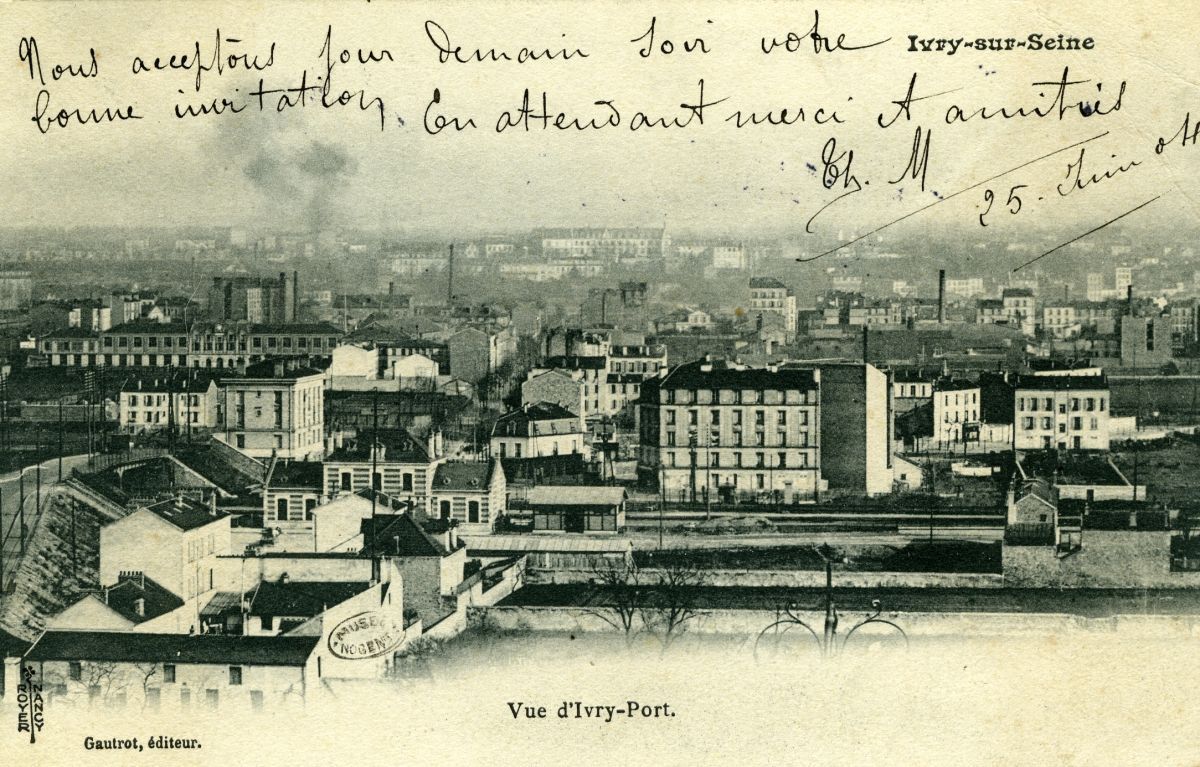 Nous acceptons pour demain soir votre
Ivry-sur-Seine
bonne invitation, En attendant merci et amitiés
Th. M
25. Juin 04
MUSEE
NOGENT
ROYER
NANCY
Vue d'Ivry-Port.
Gautrot, éditeur.